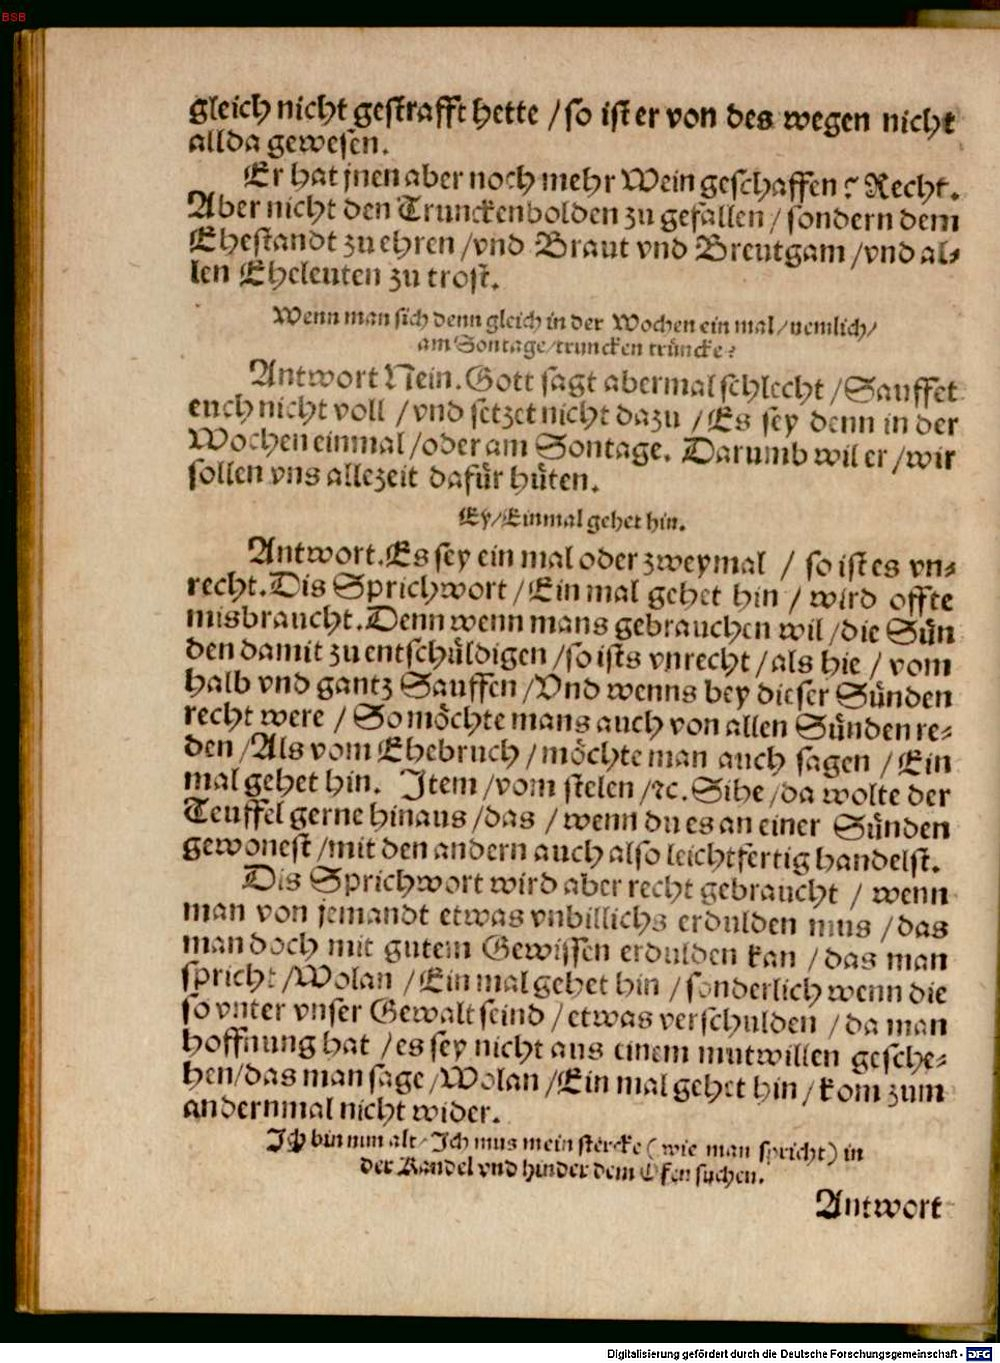 BSB
gleich nicht gestrafft hette / so ist er von des wegen nicht
allda gewesen.
Er hat jnen aber noch mehr Wein geschaffen? Recht.
Aber nicht den Trunckenbolden zu gefallen / sondern dem
Ehestandt zu ehren / vnd Braut vnd Breutgam / vnd al-
len Eheleuten zu trost.
Wenn man sich denn gleich in der Wochen ein mal / nemlich /
am Sontage / truncken trüncke?
Antwort Nein. Gott sagt abermal schlecht / Sauffet
euch nicht voll / vnd setzet nicht dazu / Es sey denn in der
Wochen einmal / oder am Sontage. Darumb wil er / wir
sollen vns allezeit dafür hüten.
Ey / Einmal gehet hin.
Antwort. Es sey ein mal oder zweymal / so ist es vn-
recht. Dis Sprichwort / Ein mal gehet hin / wird offte
misbraucht. Denn wenn mans gebrauchen wil / die Sün
den damit zu entschüldigen / so ists vnrecht / als hie / vom
halb vnd gantz Sauffen / Vnd wenns bey dieser Sünden
recht were / So möchte mans auch von allen Sünden re-
den / Als vom Ehebruch / möchte man auch sagen / Ein
mal gehet hin. Item / vom stelen / ꝛc. Sihe / da wolte der
Teuffel gerne hinaus / das / wenn du es an einer Sünden
gewonest / mit den andern auch also leichtfertig handelst.
Dis Sprichwort wird aber recht gebraucht / wenn
man von jemandt etwas vnbillichs erdulden mus / das
man doch mit gutem Gewissen erdulden kan / das man
spricht / Wolan / Ein mal gehet hin / sonderlich wenn die
so vnter vnser Gewalt seind / etwas verschulden / da man
hoffnung hat / es sey nicht aus einem mutwillen gesche-
hen / das man sage / Wolan / Ein mal gehet hin / kom zum
andernmal nicht wider.
Ich bin nun alt / Ich mus mein stercke (wie man spricht) in
der Kandel vnd hinder dem Ofen suchen.
Antwort
Digitalisierung gefördert durch die Deutsche Forschungsgemeinschaft - DFG